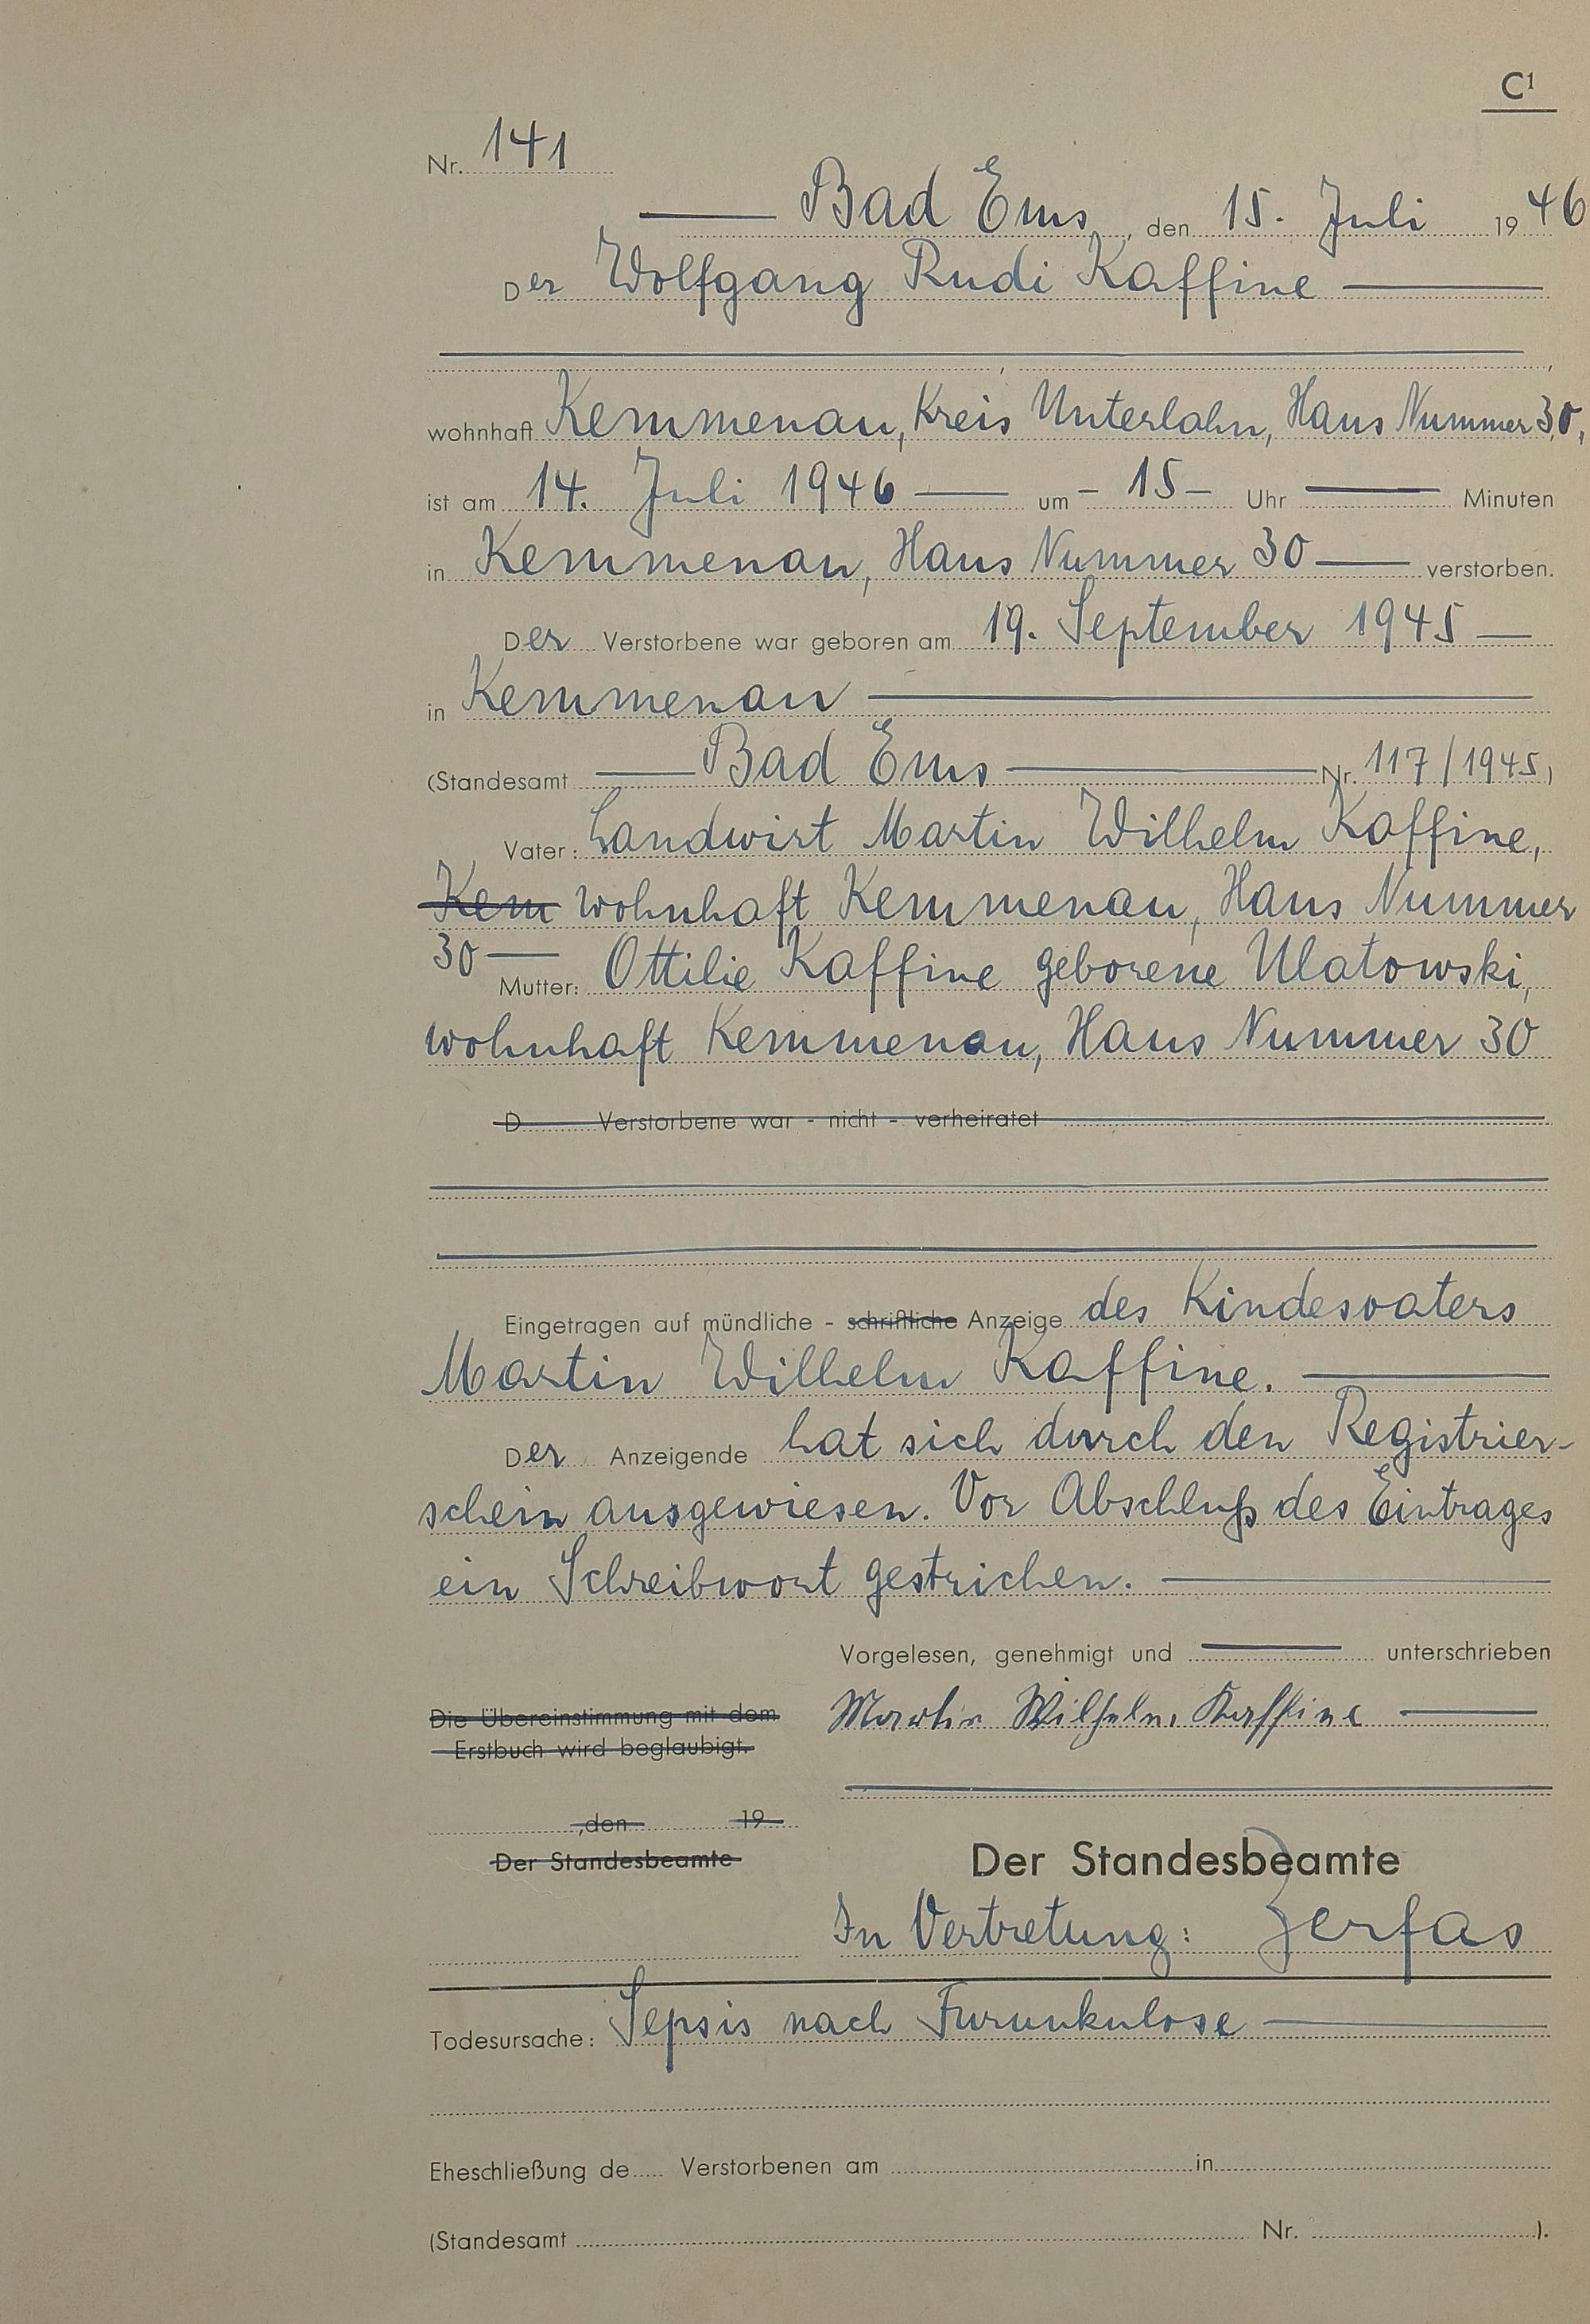 C1
Nr. 141
Bad Ems, den 15. Juli 1946
Der Wolfgang Rudi Kaffine
,
wohnhaft Kemmenau, Kreis Unterlahn, Haus Nummer 30,
ist am 14. Juli 1946 um - 15 - Uhr Minuten
in Kemmenau, Haus Nummer 30 verstorben.
Der Verstorbene war geboren am 19. September 1945
in Kemmenau
(Standesamt Bad Ems Nr. 117/1945)
Vater: Landwirt Martin Wilhelm Kaffine,
Kem wohnhaft Kemmenau, Haus Nummer
30
Mutter: Ottilie Kaffine geborene Ulatowski,
wohnhaft Kemmenau, Haus Nummer 30
D Verstorbene war - nicht - verheiratet
Eingetragen auf mündliche - schriftliche Anzeige des Kindesvaters
Martin Wilhelm Kaffine.
Der Anzeigende hat sich durch den Registrier-
schein ausgewiesen. Vor Abschluß des Eintrages
ein Schreibwort gestrichen.
Vorgelesen, genehmigt und unterschrieben
Martin Wilhelm Kaffine
Die Übereinstimmung mit dem
Erstbuch wird beglaubigt.
, den 19
Der Standesbeamte
Der Standesbeamte
In Vertretung: Zerfas
Todesursache: Sepsis nach Furunkulose
Eheschließung de Verstorbenen am in
(Standesamt Nr. ).